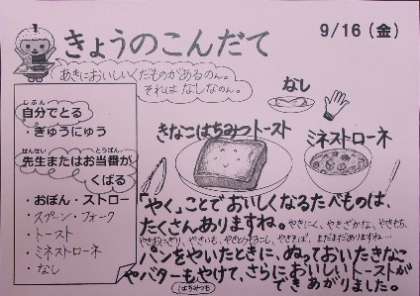 きょうのこんだて
9/16（金）
あきにおいしいくだものがあるのん。
それはなしなのん。
じぶん
自分でとる
・ぎゅうにゅう
せんせい とうばん
先生またはお当番が
くばる
・おぼん・ストロー
・スプーン・フォーク
・トースト
・ミネストローネ
・なし
なし
きなこはちみつトースト
ミネストローネ
「やく」ことでおいしくなるたべものは、
たくさんありますね。
やきにく、やきざかな、やきもち、
やきいも、やきとうもろこし、やきそば、まだまだありますね…
パンをやいたときに、ぬっておいたきなこ
やバターもやけて、さらにおいしいトーストが
できあがりました。
はちみつも